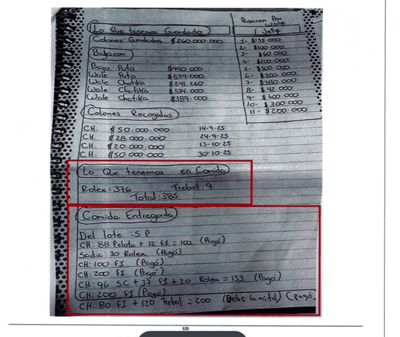 Lo Que tenemos Guardado
Colones Guardados $260.000.000
Bajaron
Pago Auto $450.000
Wale Auto $579.000
Wale Chatika $241.260
Wale Chatika $574.000
Wale Chatika $389.000
Wale
Jefe
1- $135.000
2- $100.000
3- $60.000
4- $100.000
5- $500.000
6- $300.000
7- $380.000
8- $42.000
9- $600.000
10- $300.000
11- $200.000
Colones Recogidos
CH. $50.000.000 14-9-25
CH. $28.000.000 24-9-25
CH. $20.000.000 13-10-25
CH. $50.000.000 30-10-25
Lo Que tenemos en Comida
Rolex: 376 Trebol: 9
Total: 385
Comida Entregada
Del lote: SP
CH: 88 Pelota + 12 FI = 100 (Pago)
Sadic: 30 Rolex (Pago)
CH: 100 FI (Pago)
CH: 200 FI (Pago)
CH: 96 SC + 37 FI + 20 Rolex = 153 (Pago)
CH: 200 FI (Pago)
CH: 80 FI + 120 Trebol = 200 (Debe la mitad) (Pago)